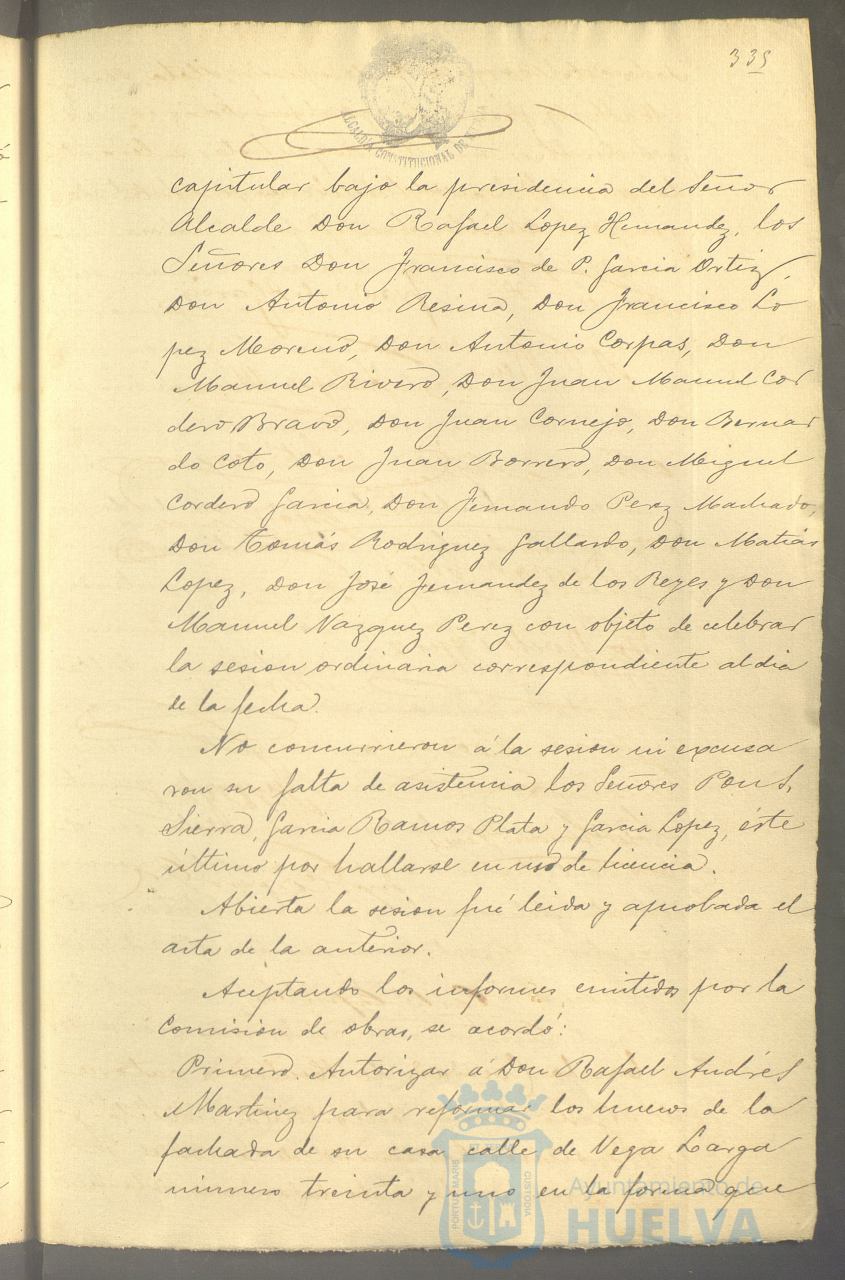 335
ALCALDÍA CONSTITUCIONAL DE
capitular bajo la presidencia del Señor
Alcalde Don Rafael Lopez Hernandez, los
Señores Don Francisco de P. Garcia Ortiz,
Don Antonio Resina, Don Francisco Lo
pez Moreno, Don Antonio Corpas, Don
Manuel Rivero, Don Juan Manuel Cor
dero Bravo, Don Juan Cornejo, Don Bernar
do Coto, Don Juan Borrero, Don Miguel
Cordero Garcia, Don Fernando Perez Machado,
Don Tomás Rodriguez Gallardo, Don Matias
Lopez, Don José Fernandez de los Reyes y Don
Manuel Vazquez Perez con objeto de celebrar
la sesion ordinaria correspondiente al dia
de la fecha.
No concurrieron á la sesion ni excusa
ron su falta de asistencia los Señores Pons,
Sierra, Garcia Ramos Plata y Garcia Lopez, éste
último por hallarse en uso de licencia.
Abierta la sesion fué leida y aprobada el
acta de la anterior.
Aceptando los informes emitidos por la
Comision de obras, se acordó:
Primero. Autorizar á Don Rafael Andrés
Martinez para reformar los huecos de la
fachada de su casa calle de Vega Larga
número treinta y uno en la forma que
PORTUS MARIS
CUSTODIA
Ayuntamiento de
HUELVA